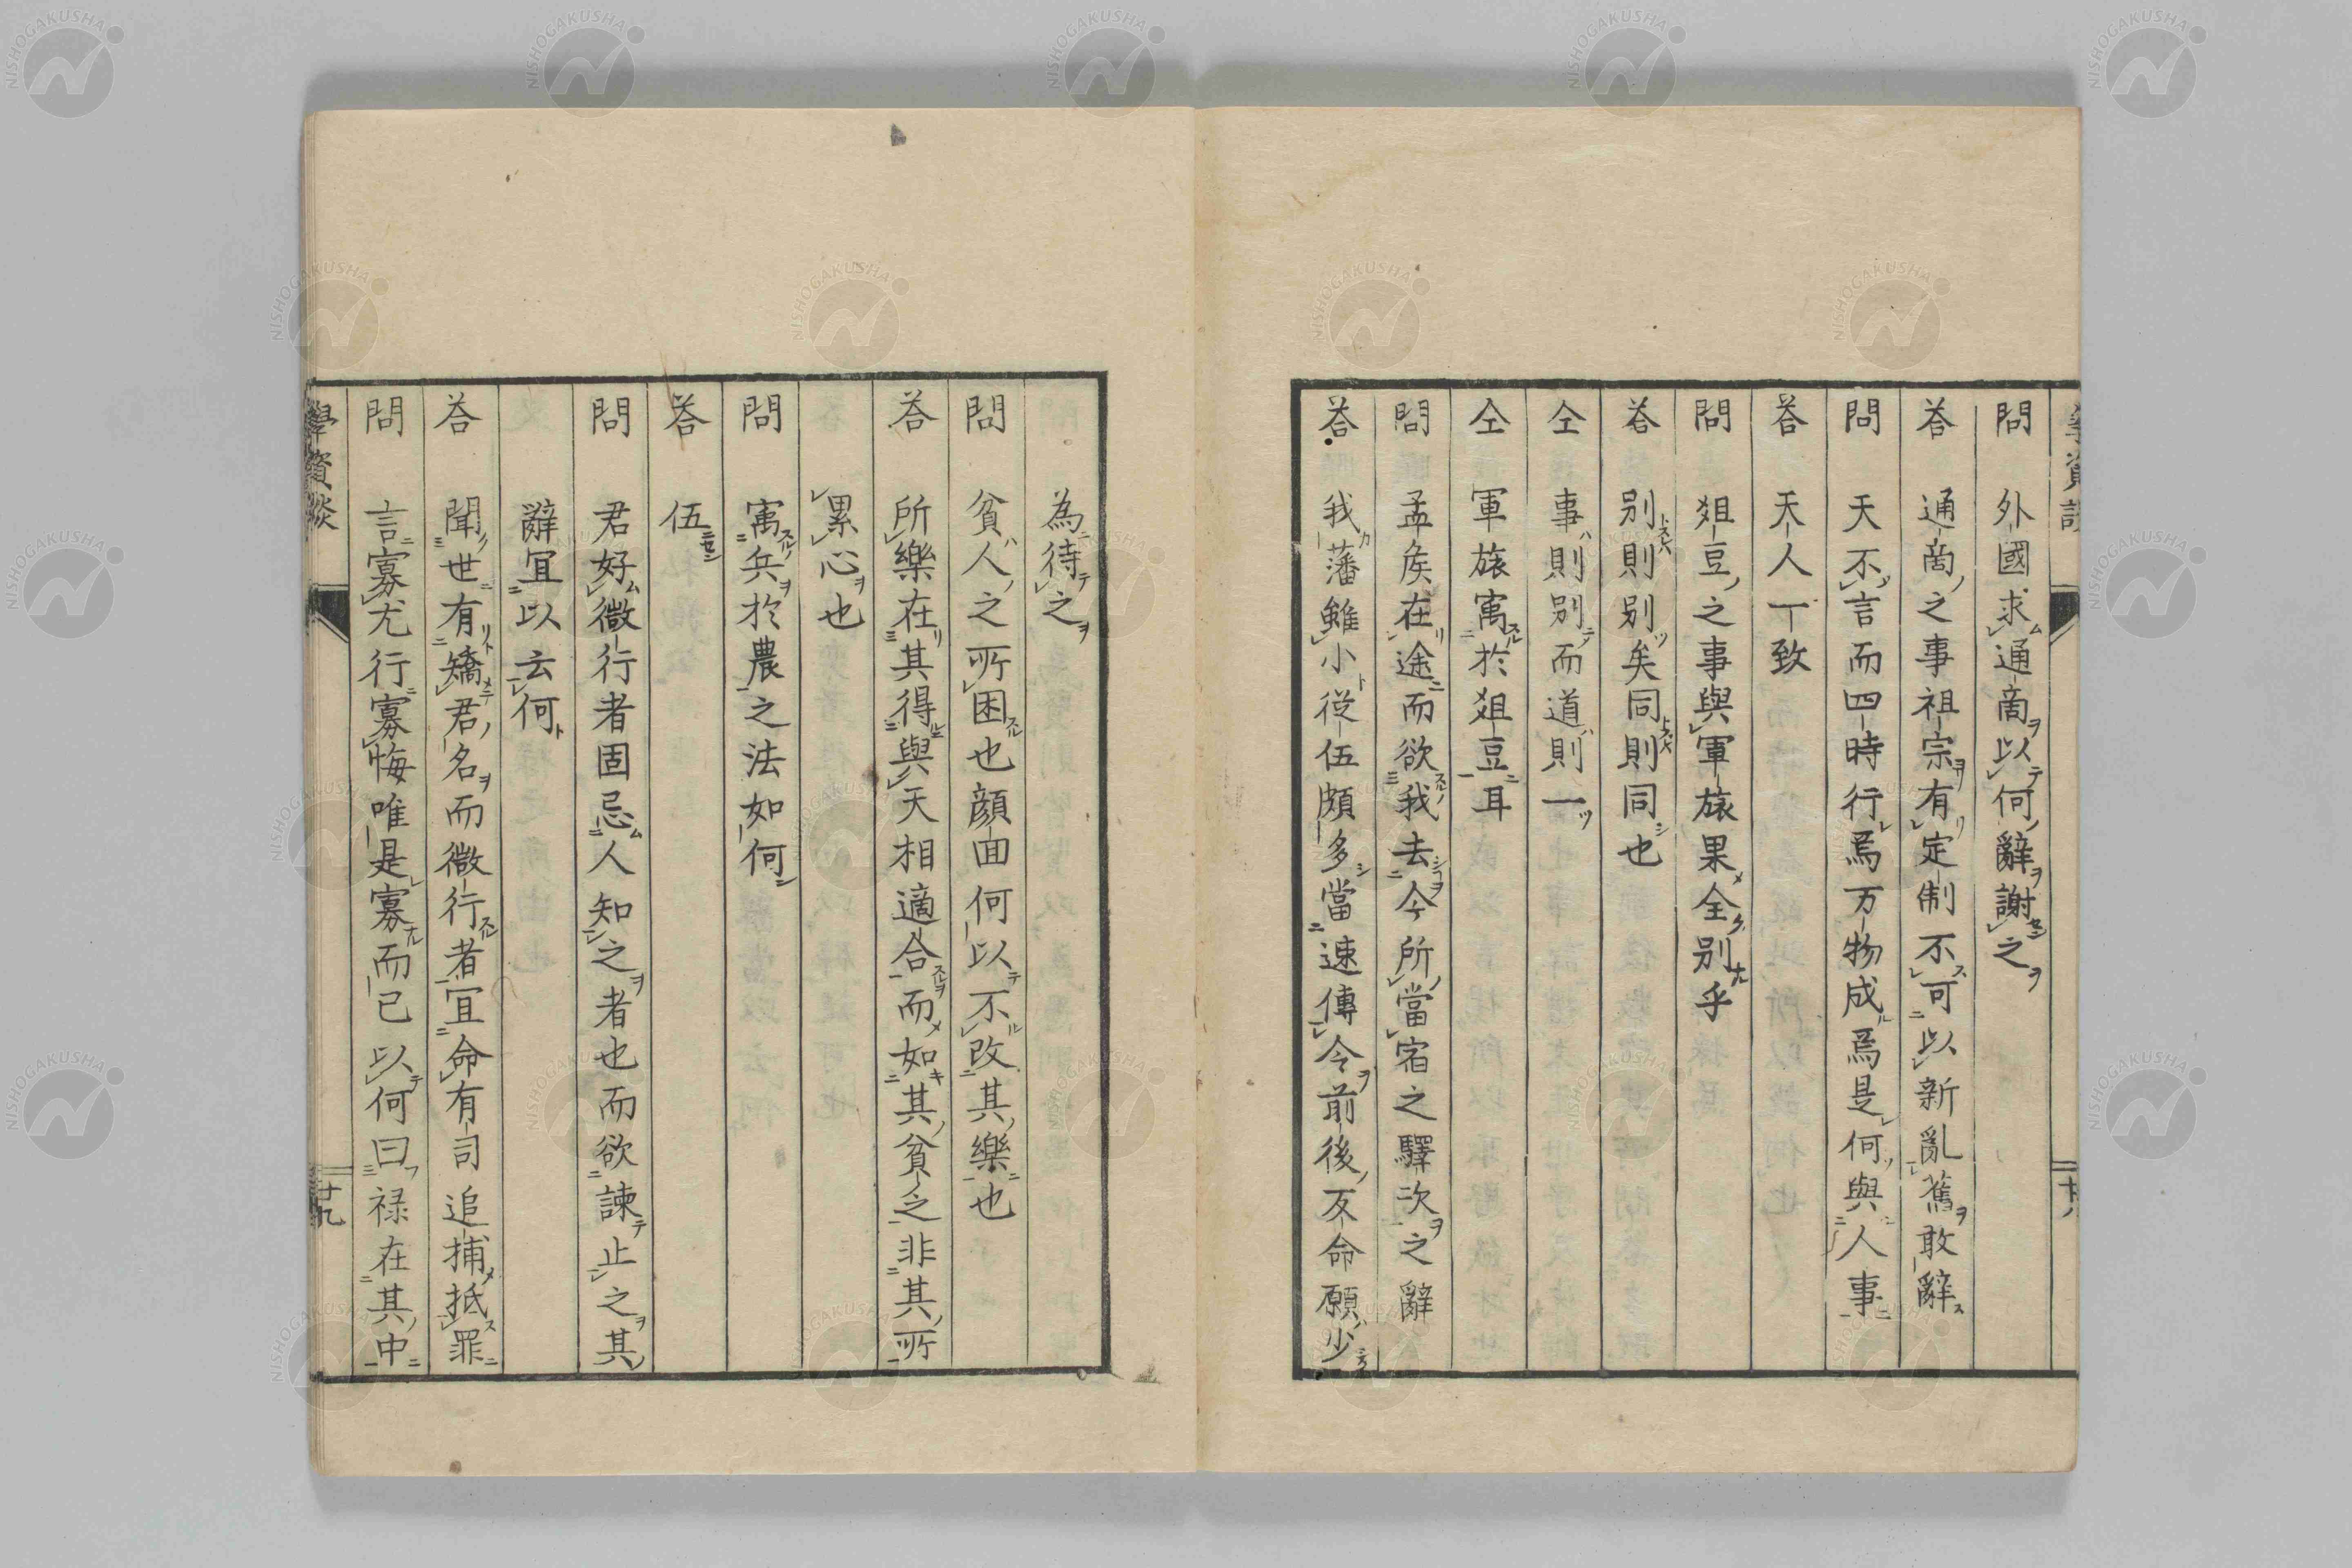 問 外國求通商以何辭謝之
答 通商之事祖宗有定制不可以新亂舊敢辭
問 天不言而四時行焉万物成焉是何與人事
答 天人一致
問 俎豆之事與軍旅果全別乎
答 別則別矣同則同也
仝 事則別而道則一
仝 軍旅寓於俎豆耳
問 孟矦在途而欲我去今所當宿之驛次之辭
答 我藩雖小從伍頗多當速傳令前後反命願少
為待之
問 貧人之所困也顔回何以不改其樂也
答 所樂在其得與天相適合而如其貧乏非其所
累心也
問 寓兵於農之法如何
答 伍
問 君好微行者固忌人知之者也而欲諫止之其
辭宜以云何
答 聞世有矯君名而微行者宜命有司追捕抵罪
問 言寡尤行寡悔唯是寡而已以何曰禄在其中
學資談
廿九